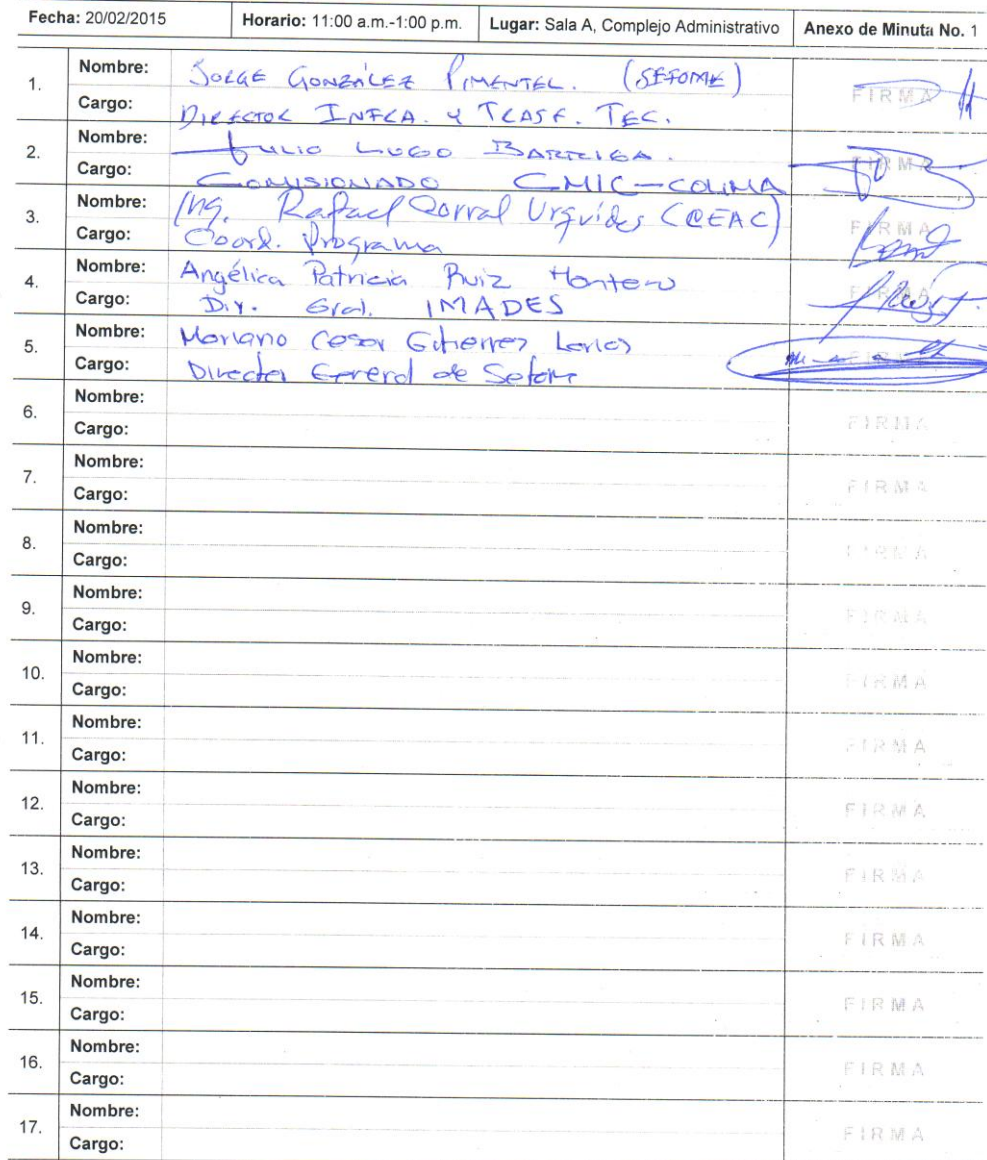 Fecha: 20/02/2015 Horario: 11:00 a.m.-1:00 p.m. Lugar: Sala A, Complejo Administrativo Anexo de Minuta No. 1
1. Nombre: JORGE GONZÁLEZ PIMENTEL. (SEFOME) FIRMA
Cargo: DIRECTOR INFRA. Y TRASF. TEC.
2. Nombre: JULIO LUGO BARRIGA. FIRMA
Cargo: COMISIONADO CMIC-COLIMA
3. Nombre: Ing. Rafael Corral Urquídes (CEAC) FIRMA
Cargo: Coord. Programa
4. Nombre: Angélica Patricia Ruiz Montero FIRMA
Cargo: Dir. Gral. IMADES
5. Nombre: Mariano Cesar Gutierrez Larios FIRMA
Cargo: Director General de Sefome
6. Nombre:
Cargo: FIRMA
7. Nombre:
Cargo: FIRMA
8. Nombre:
Cargo: FIRMA
9. Nombre:
Cargo: FIRMA
10. Nombre:
Cargo: FIRMA
11. Nombre:
Cargo: FIRMA
12. Nombre:
Cargo: FIRMA
13. Nombre:
Cargo: FIRMA
14. Nombre:
Cargo: FIRMA
15. Nombre:
Cargo: FIRMA
16. Nombre:
Cargo: FIRMA
17. Nombre:
Cargo: FIRMA